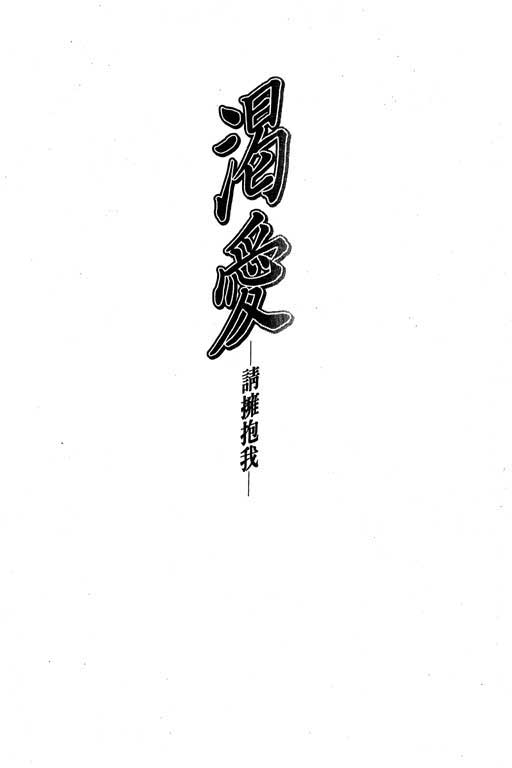 渴愛
—請擁抱我—